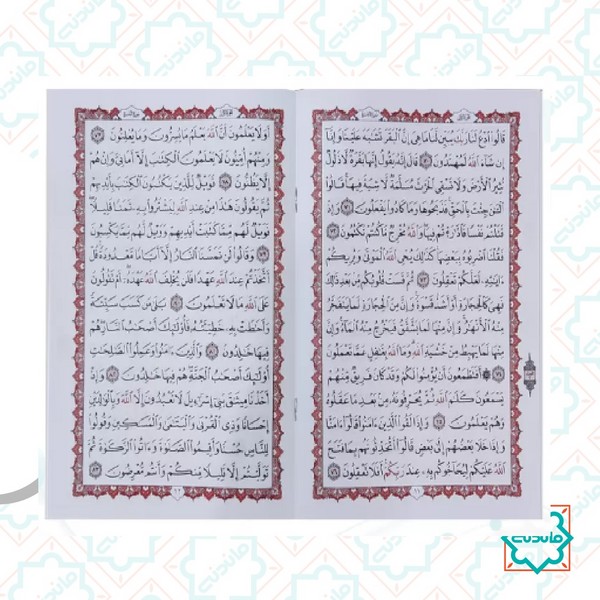 قَالُوا۟ ٱدْعُ لَنَا رَبَّكَ يُبَيِّن لَّنَا مَا هِىَ إِنَّ ٱلْبَقَرَ تَشَـٰبَهَ عَلَيْنَا وَإِنَّآ
إِن شَآءَ ٱللَّهُ لَمُهْتَدُونَ ٧٠ قَالَ إِنَّهُۥ يَقُولُ إِنَّهَا بَقَرَةٌ لَّا ذَلُولٌ
تُثِيرُ ٱلْأَرْضَ وَلَا تَسْقِى ٱلْحَرْثَ مُسَلَّمَةٌ لَّا شِيَةَ فِيهَا قَالُوا۟
ٱلْـَٔـٰنَ جِئْتَ بِٱلْحَقِّ فَذَبَحُوهَا وَمَا كَادُوا۟ يَفْعَلُونَ ٧١ وَإِذْ
قَتَلْتُمْ نَفْسًا فَٱدَّٰرَْٰٔتُمْ فِيهَا وَٱللَّهُ مُخْرِجٌ مَّا كُنتُمْ تَكْتُمُونَ ٧٢
فَقُلْنَا ٱضْرِبُوهُ بِبَعْضِهَا كَذَٰلِكَ يُحْىِ ٱللَّهُ ٱلْمَوْتَىٰ وَيُرِيكُمْ
ءَايَـٰتِهِۦ لَعَلَّكُمْ تَعْقِلُونَ ٧٣ ثُمَّ قَسَتْ قُلُوبُكُم مِّنۢ بَعْدِ ذَٰلِكَ
فَهِىَ كَٱلْحِجَارَةِ أَوْ أَشَدُّ قَسْوَةً وَإِنَّ مِنَ ٱلْحِجَارَةِ لَمَا يَتَفَجَّرُ
مِنْهُ ٱلْأَنْهَـٰرُ وَإِنَّ مِنْهَا لَمَا يَشَّقَّقُ فَيَخْرُجُ مِنْهُ ٱلْمَآءُ وَإِنَّ
مِنْهَا لَمَا يَهْبِطُ مِنْ خَشْيَةِ ٱللَّهِ وَمَا ٱللَّهُ بِغَـٰفِلٍ عَمَّا تَعْمَلُونَ
٧٤ أَفَتَطْمَعُونَ أَن يُؤْمِنُوا۟ لَكُمْ وَقَدْ كَانَ فَرِيقٌ مِّنْهُمْ
يَسْمَعُونَ كَلَـٰمَ ٱللَّهِ ثُمَّ يُحَرِّفُونَهُۥ مِنۢ بَعْدِ مَا عَقَلُوهُ
وَهُمْ يَعْلَمُونَ ٧٥ وَإِذَا لَقُوا۟ ٱلَّذِينَ ءَامَنُوا۟ قَالُوٓا۟ ءَامَنَّا
وَإِذَا خَلَا بَعْضُهُمْ إِلَىٰ بَعْضٍ قَالُوٓا۟ أَتُحَدِّثُونَهُم بِمَا فَتَحَ
ٱللَّهُ عَلَيْكُمْ لِيُحَآجُّوكُم بِهِۦ عِندَ رَبِّكُمْ أَفَلَا تَعْقِلُونَ ٧٦
١١
أَوَلَا يَعْلَمُونَ أَنَّ ٱللَّهَ يَعْلَمُ مَا يُسِرُّونَ وَمَا يُعْلِنُونَ ٧٧
وَمِنْهُمْ أُمِّيُّونَ لَا يَعْلَمُونَ ٱلْكِتَـٰبَ إِلَّآ أَمَانِىَّ وَإِنْ هُمْ
إِلَّا يَظُنُّونَ ٧٨ فَوَيْلٌ لِّلَّذِينَ يَكْتُبُونَ ٱلْكِتَـٰبَ بِأَيْدِيهِمْ
ثُمَّ يَقُولُونَ هَـٰذَا مِنْ عِندِ ٱللَّهِ لِيَشْتَرُوا۟ بِهِۦ ثَمَنًا قَلِيلًا
فَوَيْلٌ لَّهُم مِّمَّا كَتَبَتْ أَيْدِيهِمْ وَوَيْلٌ لَّهُم مِّمَّا يَكْسِبُونَ
٧٩ وَقَالُوا۟ لَن تَمَسَّنَا ٱلنَّارُ إِلَّآ أَيَّامًا مَّعْدُودَةً قُلْ
أَتَّخَذْتُمْ عِندَ ٱللَّهِ عَهْدًا فَلَن يُخْلِفَ ٱللَّهُ عَهْدَهُۥٓ أَمْ تَقُولُونَ
عَلَى ٱللَّهِ مَا لَا تَعْلَمُونَ ٨٠ بَلَىٰ مَن كَسَبَ سَيِّئَةً
وَأَحَـٰطَتْ بِهِۦ خَطِيٓـَٔتُهُۥ فَأُو۟لَـٰٓئِكَ أَصْحَـٰبُ ٱلنَّارِ هُمْ
فِيهَا خَـٰلِدُونَ ٨١ وَٱلَّذِينَ ءَامَنُوا۟ وَعَمِلُوا۟ ٱلصَّـٰلِحَـٰتِ
أُو۟لَـٰٓئِكَ أَصْحَـٰبُ ٱلْجَنَّةِ هُمْ فِيهَا خَـٰلِدُونَ ٨٢ وَإِذْ
أَخَذْنَا مِيثَـٰقَ بَنِىٓ إِسْرَٰٓءِيلَ لَا تَعْبُدُونَ إِلَّا ٱللَّهَ وَبِٱلْوَٰلِدَيْنِ
إِحْسَانًا وَذِى ٱلْقُرْبَىٰ وَٱلْيَتَـٰمَىٰ وَٱلْمَسَـٰكِينِ وَقُولُوا۟
لِلنَّاسِ حُسْنًا وَأَقِيمُوا۟ ٱلصَّلَوٰةَ وَءَاتُوا۟ ٱلزَّكَوٰةَ ثُمَّ
تَوَلَّيْتُمْ إِلَّا قَلِيلًا مِّنكُمْ وَأَنتُم مُّعْرِضُونَ ٨٣
١٢
ماندنی